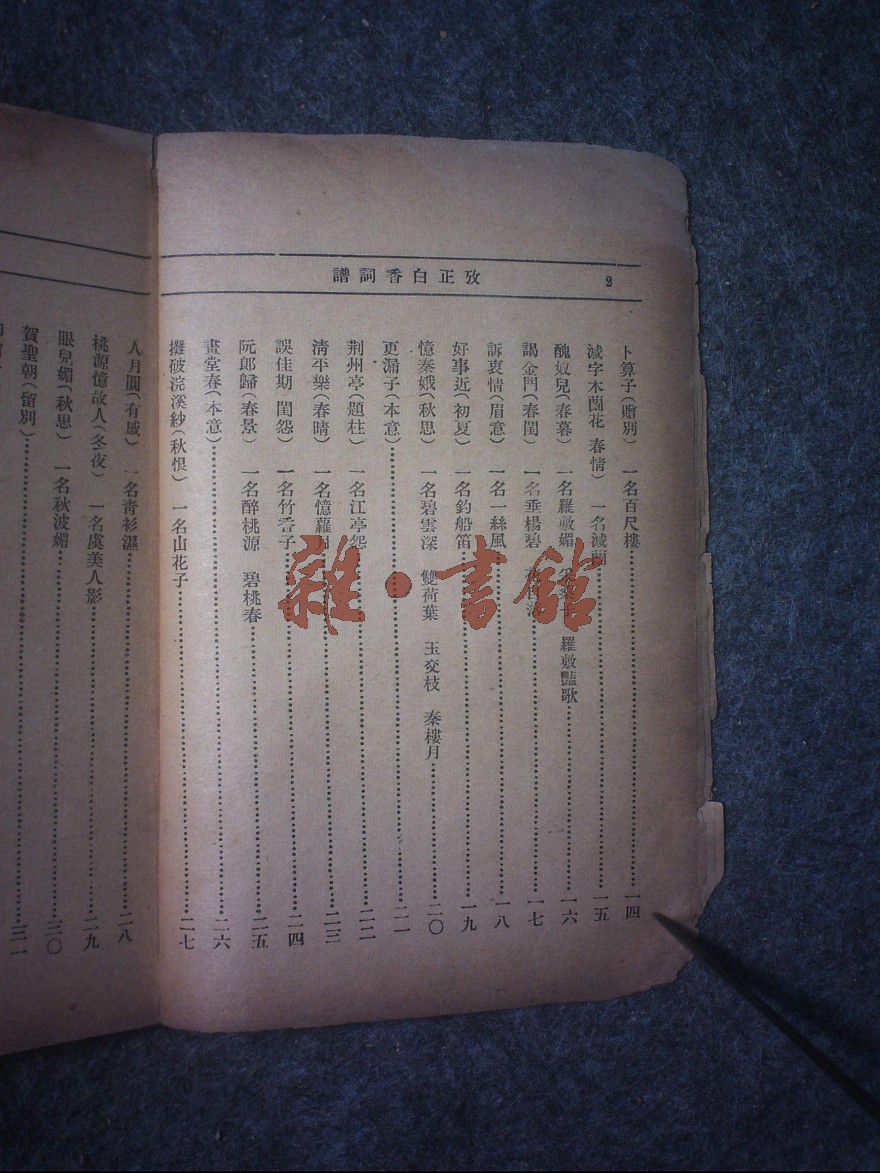 攷正白香詞譜 2
卜算子(贈別) 一名百尺樓 一四
減字木蘭花 春情) 一名減蘭 一五
醜奴兒(春暮) 一名羅敷媚 羅敷豔歌 一六
謁金門(春閨) 一名垂楊碧 一七
訴衷情(眉意) 一名一絲風 一八
好事近(初夏) 一名釣船笛 一九
憶秦娥(秋思) 一名碧雲深 雙荷葉 玉交枝 秦樓月 二〇
更漏子(本意) 二一
荆州亭(題柱) 一名江亭怨 二二
清平樂(春晴) 一名憶蘿 二三
誤佳期 閨怨) 一名竹香子 二四
阮郎歸(春景) 一名醉桃源 碧桃春 二五
畫堂春(本意) 二六
攤破浣溪紗(秋恨) 一名山花子 二七
人月圓(有感) 一名青衫濕 二八
桃源憶故人(冬夜) 一名虞美人影 二九
眼兒媚(秋思) 一名秋波媚 三〇
賀聖朝(留別) 三一
雜·書館